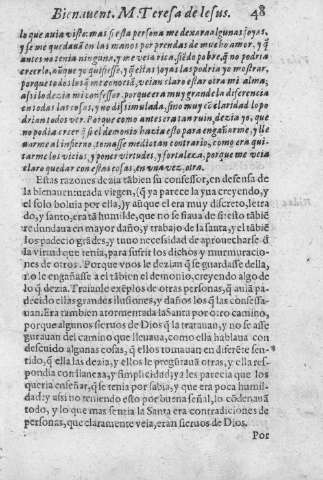 Bienauent. M. Teresa de Iesus. 48
lo que auia visto: mas si esta persona me dexara algunas joyas,
y se me quedauã en las manos por prendas de mucho amor, y q̃
antes no tenia ninguna, y me veia rica, siẽdo pobre, q̃ no podria
creerlo, aũque yo quisiesse, y q̃ estas joyas las podria yo mostrar,
porque todos los q̃ me conociã, veian claro estar otra mi alma;
assi lo dezia mi confessor, porque era muy grande la diferencia
en todas las cosas, y no dissimulada, sino muy cõ claridad lo po
drian todos ver. Porque como antes era tan ruin, dezia yo, que
no podia creer q̃ si el demonio hazia esto para engañarme, y lle
uarme al infierno, tomasse medio tan contrario, como era qui-
tarme los vicios, y poner virtudes, y fortaleza, porque me veia
claro quedar con estas cosas, en vna vez, otra.
Estas razones dezia tãbien su confessor, en defensa de
la bienauenturada virgen, (q̃ ya parece la yua creyendo, y
el solo boluia por ella,) y aũque el era muy discreto, letra
do, y santo, era tã humilde, que no se fiaua de si: esto tãbiẽ
redundaua en mayor daño, y trabajo de la santa, y el tãbiẽ
los padecio grãdes, y tuuo necesidad de aprouecharse d̃
la virtud que tenia, para sufrir los dichos y murmuracio-
nes de otros. Porque vnos le dezian q̃ se guardasse della,
no le engañasse a el tãbien el demonio, creyendo algo de
lo q̃ dezia. Traianle exẽplos de otras personas, q̃ auiã pa-
decido ellas grandes ilusiones, y daños los q̃ las confessa-
uan. Era tambien atormentada la Santa por otro camino,
porque algunos sieruos de Dios q̃ la tratauan, y no se asse
gurauan del camino que lleuaua, como ella hablaua con
descuido algunas cosas, q̃ ellos tomauan en diferẽte sen-
tido, q̃ ella las dezia, y ellos le pregũtauã otras, y ella res-
pondia con llaneza, y simplicidad; y a les parecia que los
queria enseñar, q̃ se tenia por sabia, y que era poca humil-
dad: y assi no teniendo esto por buena señal, lo cõdenauã
todo, y lo que mas sentia la Santa era contradiciones de
personas, que claramente veia, eran sieruos de Dios.
Por